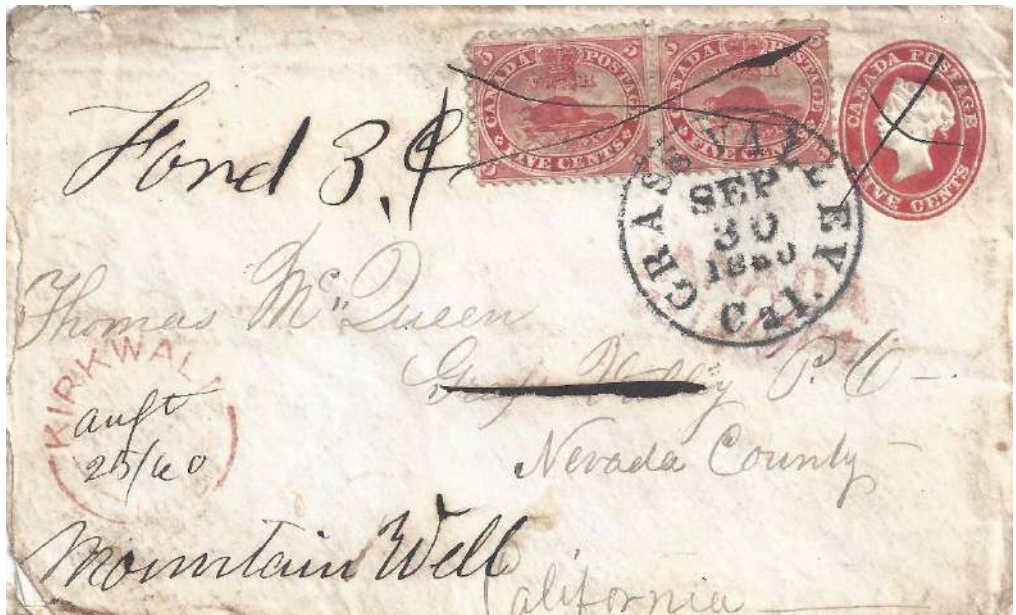 5 CANADA POSTAGE 5
FIVE CENTS
5 CANADA POSTAGE 5
FIVE CENTS
CANADA POSTAGE
FIVE CENTS
Ford 3.¢
GRASS VALLEY
SEP
30
1860
Cal.
Thomas Mc"Queen
Grass Valley P. O -
Nevada County
KIRKWALL
Augt
25/60
Mountain Well
California